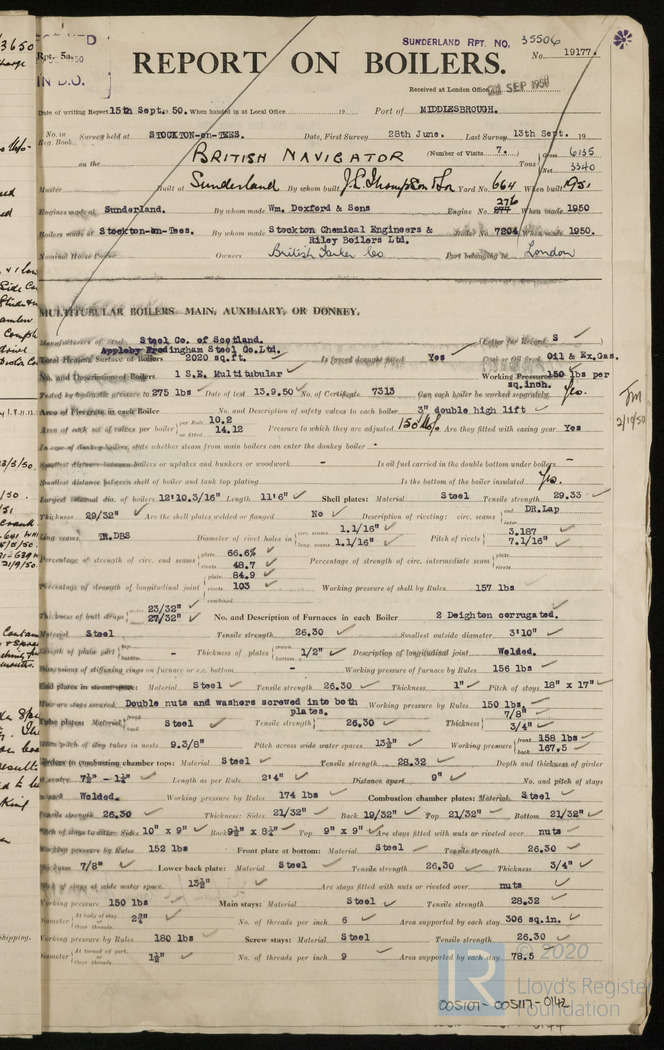 SUNDERLAND RPT. NO. 35506
Rpt. 5a. No. 19177.
REPORT ON BOILERS.
IN D.O.
Received at London Office SEP 1950
Date of writing Report 15th Sept. 50. When handed in at Local Office 19 Port of MIDDLESBROUGH.
No. in Reg. Book. Survey held at STOCKTON-on-TEES. Date, First Survey 28th June. Last Survey 13th Sept. 19
on the BRITISH NAVIGATOR (Number of Visits 7.) Tons Gross 6135 Net 3340
Master Built at Sunderland By whom built J.L. Thompson & Son Yard No. 664 When built 1951
Engines made at Sunderland. By whom made Wm. Doxford & Sons Engine No. 276 When made 1950
Boilers made at Stockton-on-Tees. By whom made Stockton Chemical Engineers & Riley Boilers Ltd. Boiler No. 7204 When made 1950.
Nominal Horse Power Owners British Tanker Co Port belonging to London
MULTITUBULAR BOILERS MAIN, AUXILIARY, OR DONKEY.
Manufacturers of Steel Steel Co. of Scotland. Appleby Frodingham Steel Co. Ltd. (Letter for Record S)
Total Heating Surface of Boilers 2020 sq.ft. Is forced draught fitted Yes Coal or Oil fired Oil & Ex.Gas.
No. and Description of Boilers 1 S.E. Multitubular Working Pressure 150 lbs per sq.inch.
Tested by hydraulic pressure to 275 lbs Date of test 13.9.50 No. of Certificate 7313 Can each boiler be worked separately Yes.
Area of Firegrate in each Boiler No. and Description of safety valves to each boiler 3" double high lift
Area of each set of valves per boiler per Rule 10.2 as fitted 14.12 Pressure to which they are adjusted 150 lbs Are they fitted with easing gear Yes
In case of donkey boilers, state whether steam from main boilers can enter the donkey boiler -
Smallest distance between boilers or uptakes and bunkers or woodwork - Is oil fuel carried in the double bottom under boilers -
Smallest distance between shell of boiler and tank top plating Is the bottom of the boiler insulated Yes.
Largest internal dia. of boilers 12'10.3/16" Length 11'6" Shell plates: Material Steel Tensile strength 29.33
Thickness 29/32" Are the shell plates welded or flanged No Description of riveting: circ. seams end DR.Lap inter
long. seams TR.DBS Diameter of rivet holes in circ. seams 1.1/16" long. seams 1.1/16" Pitch of rivets 3.187 7.1/16"
Percentage of strength of circ. end seams plate 66.6% rivets 48.7 Percentage of strength of circ. intermediate seam plate rivets
Percentage of strength of longitudinal joint plate 84.9 rivets 103 combined Working pressure of shell by Rules 157 lbs
Thickness of butt straps 23/32" 27/32" No. and Description of Furnaces in each Boiler 2 Deighton corrugated.
Material Steel Tensile strength 26.30 Smallest outside diameter 3'10"
Length of plain part top bottom - Thickness of plates crown bottom 1/2" Description of longitudinal joint Welded.
Dimensions of stiffening rings on furnace or c.c. bottom - Working pressure of furnace by Rules 156 lbs
End plates in steam space: Material Steel Tensile strength 26.30 Thickness 1" Pitch of stays 18" x 17"
How are stays secured Double nuts and washers screwed into both plates. Working pressure by Rules 150 lbs
Tube plates: Material front back Steel Tensile strength 26.30 Thickness 7/8" 3/4"
Mean pitch of stay tubes in nests 9.3/8" Pitch across wide water spaces 13½" Working pressure front 158 lbs back 167.5
Girders to combustion chamber tops: Material Steel Tensile strength 28.32 Depth and thickness of girder
at centre 7½" - 1¼" Length as per Rule 2'4" Distance apart 9" No. and pitch of stays
in each Welded. Working pressure by Rules 174 lbs Combustion chamber plates: Material Steel
Tensile strength 26.30 Thickness: Sides 21/32" Back 19/32" Top 21/32" Bottom 21/32"
Pitch of stays to ditto: Sides 10" x 9" Back 9½" x 8½" Top 9" x 9" Are stays fitted with nuts or riveted over nuts
Working pressure by Rules 152 lbs Front plate at bottom: Material Steel Tensile strength 26.30
Thickness 7/8" Lower back plate: Material Steel Tensile strength 26.30 Thickness 3/4"
Pitch of stays at wide water space 13½" Are stays fitted with nuts or riveted over nuts
Working pressure 150 lbs Main stays: Material Steel Tensile strength 28.32
Diameter At body of stay, or Over threads 2¾" No. of threads per inch 6 Area supported by each stay 306 sq.in.
Working pressure by Rules 180 lbs Screw stays: Material Steel Tensile strength 26.30
Diameter At turned off part, or Over threads 1½" No. of threads per inch 9 Area supported by each stay 78.5
005107-005117-0142
LR © 2020
Lloyd's Register
Foundation